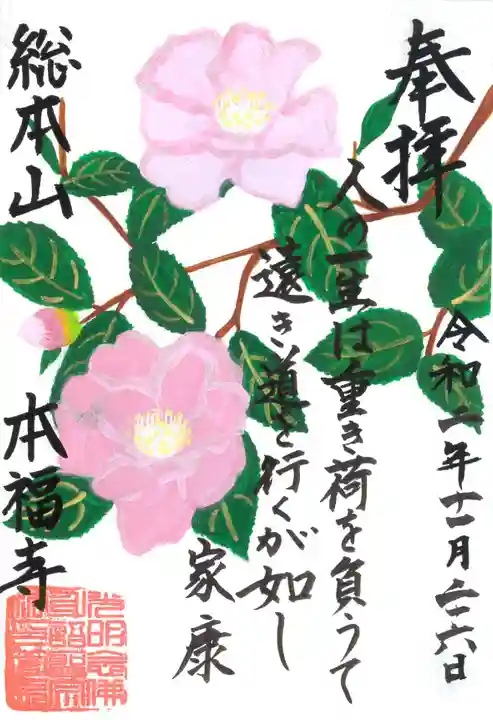 奉拝
令和二年十一月二十六日
人の一生は重き荷を負うて
遠き道を行くが如し
家康
総本山
本福寺